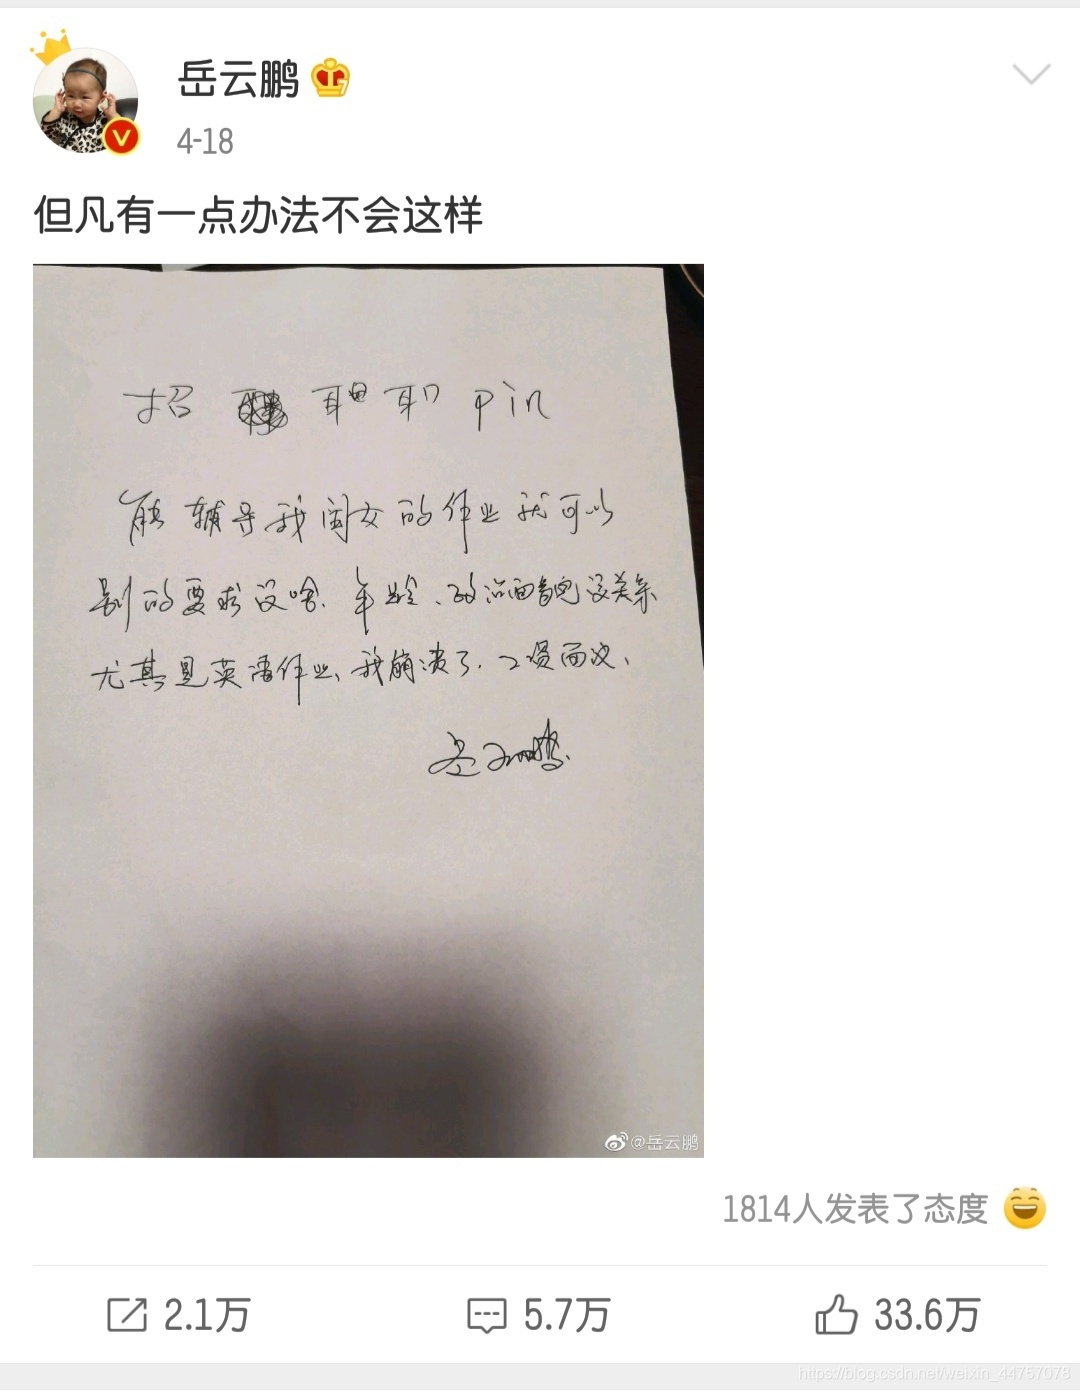 岳云鹏
4-18
但凡有一点办法不会这样
招 耶 职 pin
能辅导我闺女的作业就可以
别的要求没啥.年龄、政治面貌完没关系
尤其是英语作业、我崩溃了.工资面议、
岳云鹏
@岳云鹏
1814人发表了态度
2.1万 5.7万 33.6万
https://blog.csdn.net/weixin_44757078